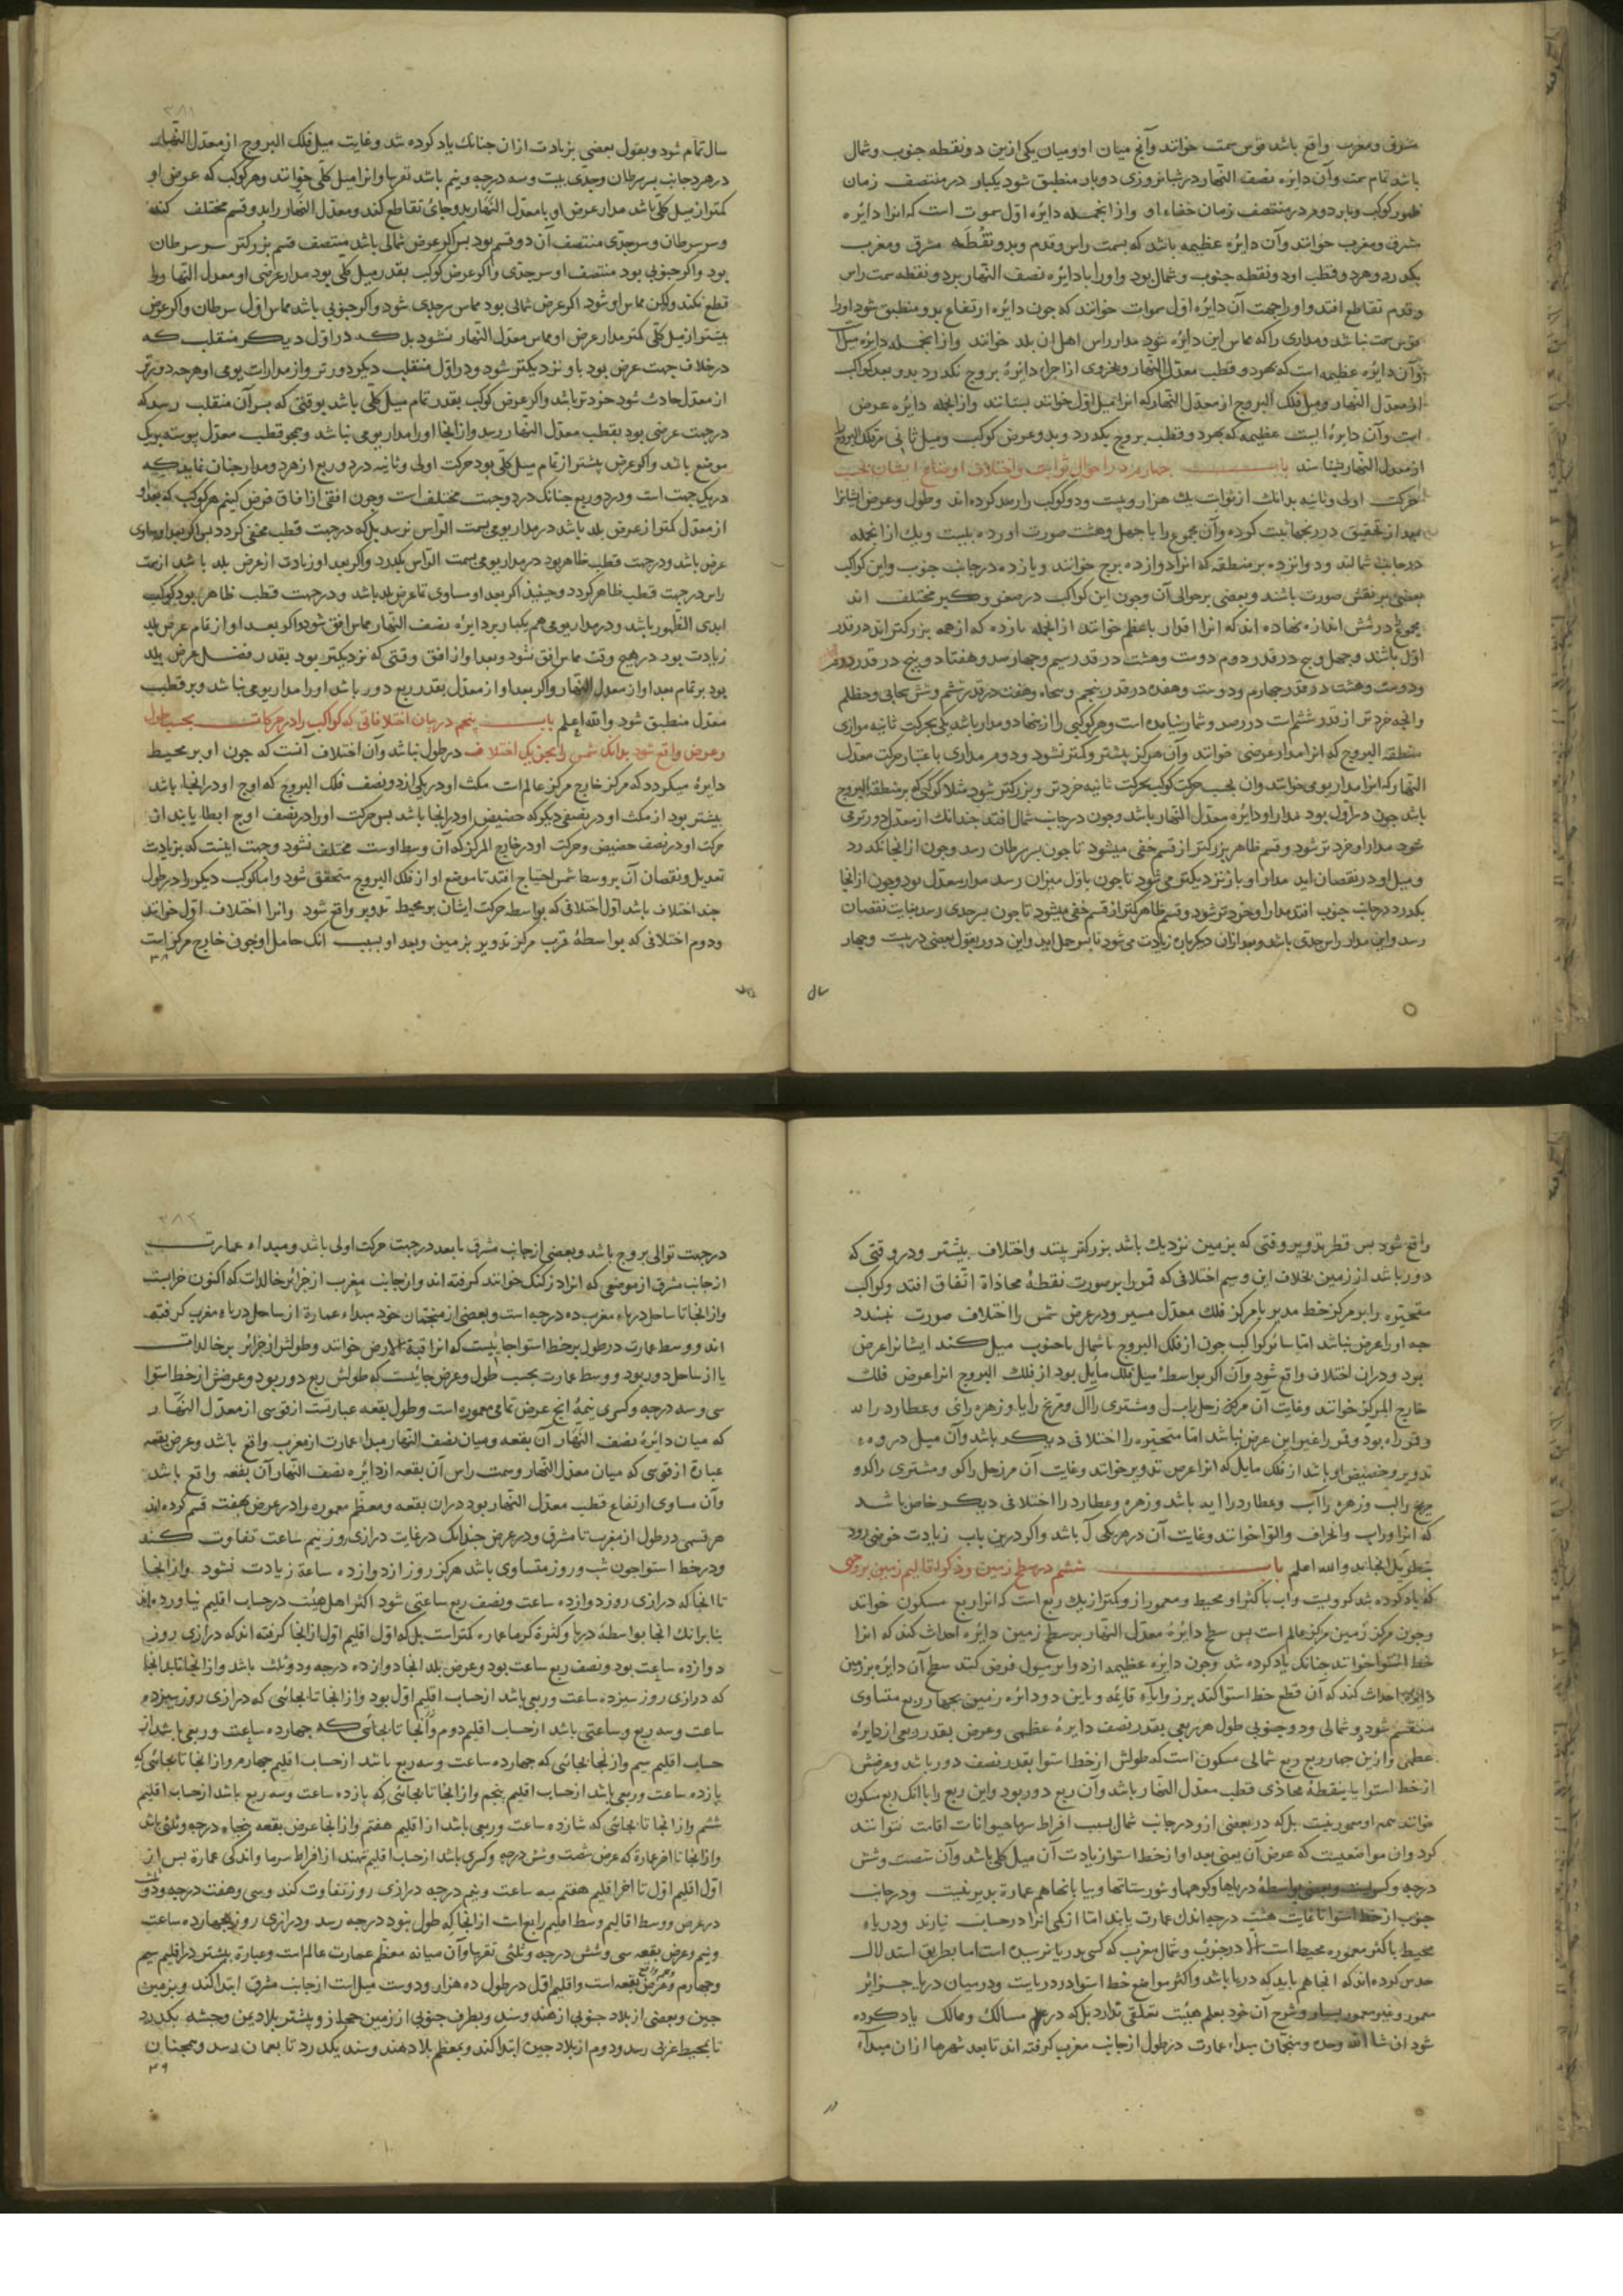 شرقی ومغرب واقع باشد قوس سمت خوانند وآنچ میان او ومیان یکی ازین دو نقطه جنوب وشمال
باشد تمام سمت وآن دایره نصف النهار در شبانروزی دو بار منطبق شود یکبار در منتصف زمان
ظهور کوکب وبار دوم در منتصف زمان خفاء او واز انجمله دایره اول سموت است که انرا دایره
شرق ومغرب خوانند وآن دایره عظیمه باشد که بسمت راس وقدم وبدو نقطه مشرق ومغرب
بکذرد وهر دو قطب او دو نقطه جنوب وشمال بود واورا با دایره نصف النهار بر دو نقطه سمت راس
وقدم تقاطع افتد واورا بجهت آن دایره اول سموات خوانند که چون دایره ارتفاع بدو منطبق شود اورا
قوس سمت نباشد ومداری را که مماس این دایره شود مدار راس اهل ان بلد خوانند واز انجمله دایره میل
وآن دایره عظیمه است که بهر دو قطب معدل النهار وبجزوی از اجزاء دایره بروج بکذرد بدو بعد کواکب
از معدل النهار ومیل فلک البروج از معدل النهار که انرا میل اول خوانند بشناسند واز انجمله دایره عرض
است وآن دایره ایست عظیمه که بهر دو قطب بروج بکذرد وبدو عرض کوکب ومیل ثانی فلک البروج
از معدل النهار بشناسند باب چهارم در احوال ثوابت واختلاف اوضاع ایشان بحسب
حرکت اولی وثانیه بدانک از ثوابت یک هزار وبیست ودو کوکب را رصد کرده اند وطول وعرض ایشانرا
بعد از تحقیق در زیجها ثبت کرده وآن مجموع را با چهل وهشت صورت اورده بیست ویک از انجمله
در جانب شمالند ودوانزده بر منطقه که انرا دوازده برج خوانند وپانزده در جانب جنوب واین کواکب
بعضی بر نفس صورت باشند وبعضی بر حوالی آن وچون این کواکب در صغر وکبر مختلف اند
اول باشند وچهل وپنج در قدر دوم ودویست وهشت در قدر سیم وچهارصد وهفتاد وپنج در قدر
ودویست وهفده در قدر پنجم وپنجاه وهفت در قدر ششم وشش سحابی ومظلم
منطقه البروج که انرا مدار عرضی خوانند وآن هرکز بیشتر وکمتر نشود ودوم مداری باعتبار حرکت معدل
النهار که انرا مدار یومی خوانند وان بحسب حرکت کوکب بحرکت ثانیه خردتر وبزرکتر شود مثلا کوکبی که بر منطقه البروج
باشد چون در اول بود مدار او دایره معدل النهار باشد وچون در جانب شمال افتد چندانک از معدل دورتر می
شود مدار او خردتر شود وقسم ظاهر بزرکتر از قسم خفی میشود تا چون بسر سرطان رسد وچون از انجا بکذرد
ومیل او در نقصان اید مدار او باز نزدیکتر می شود تا چون باول میزان رسد مدار معدل بود وچون از انجا
بکذرد در جانب جنوب افتد مدار او خردتر شود وقسم ظاهر کمتر از قسم خفی میشود تا چون بسر جدی رسد بغایت نقصان
رسد واین مدار راس جدی باشد وبعد ازان دیکرباره زیادت می شود تا بسر حمل اید واین دور بقول بعضی در بیست وچهار
سال
سال تمام شود وبقول بعضی بزیادت ازان چنانک یاد کرده شد وغایت میل فلک البروج از معدل النهار
در هر دو جانب بسر سرطان وجدی بیست وسه درجه ونیم باشد تقریبا وانرا میل کلی خوانند وهر کوکب که عرض او
کمتر از میل کلی باشد مدار عرض او با معدل النهار بدو جای تقاطع کند ومعدل النهار را بدو قسم مختلف کند
وسر سرطان وسر جدی منتصف آن دو قسم بود پس اکر عرض شمالی باشد منتصف قسم بزرکتر سر سرطان
بود واکر جنوبی بود منتصف او سر جدی واکر عرض کوکب بقدر میل کلی بود مدار عرضی او معدل النهار را
قطع نکند ولیکن مماس او شود اکر عرض شمالی بود مماس سر جدی شود واکر جنوبی باشد مماس اول سرطان واکر عرض
بیشتر از میل کلی مدار عرض او مماس معدل النهار نشود بلکه در اول دیکر منقلب که
در خلاف جهت عرض بود باو نزدیکتر شود ودر اول منقلب دیکر دورتر واز مدارات یومی او هرچه دورتر
از معدل حادث شود خردتر باشد واکر عرض کوکب بقدر تمام میل کلی باشد بوقتی که بسر آن منقلب رسد که
در جهت عرض بود بقطب معدل النهار رسد واز انجا اورا مدار یومی نباشد وهمچو قطب معدل پیوسته بیک
موضع باشد واکر عرض بیشتر از تمام میل کلی بود حرکت اولی وثانیه در دو ربع از هر دو مدار چنان نماید که
در یک جهت است ودر دو ربع چنانک در دو جهت مختلف است وچون افقی از افاق فرض کنیم هر کوکب که بعد او
از معدل کمتر از عرض بلد باشد در مدار یومی بسمت الراس نرسد بلکه در جهت قطب مخفی کردد پس اکر بعد او مساوی
عرض باشد ودر جهت قطب ظاهر بود در مدار یومی بسمت الراس بکذرد واکر بعد او زیادت از عرض بلد باشد از سمت
راس در جهت قطب ظاهر کردد وحینیذ اکر بعد او مساوی تمام عرض بلد باشد ودر جهت قطب ظاهر بود کوکب
ابدی الظهور باشد ودر مدار یومی هم یکبار بر دایره نصف النهار مماس افق شود واکر بعد او از تمام عرض بلد
زیادت بود در هیچ وقت مماس افق نشود وبعد او از افق وقتی که نزدیکتر بود بقدر فضل عرض بلد
بود بر تمام بعد او از معدل النهار واکر بعد او از معدل بقدر ربع دور باشد اورا مدار یومی نباشد وبر قطب
معدل منطبق شود والله اعلم باب پنجم در بیان اختلافاتی که کواکب را در حرکات بحسب طول
وعرض واقع شود بدانک شمس را بجز یک اختلاف در طول نباشد وآن اختلاف آنست که چون او بر محیط
دایره میکردد که مرکز خارج مرکز عالم است مکث او در یکی از دو نصف فلک البروج که اوج او در انجا باشد
بیشتر بود از مکث او در نصفی دیکر که حضیض او در انجا باشد پس حرکت اورا در نصف اوج ابطا یابند از
حرکت او در نصف حضیض وحرکت او در خارج المرکز که آن وسط اوست مختلف نشود وجهت اینست که بزیادت
تعدیل ونقصان آن بر وسط شمس احتیاج افتد تا موضع او از فلک البروج متحقق شود واما کوکب دیکر را در طول
چند اختلاف باشد اول اختلافی که بواسطه حرکت ایشان بر محیط تدویر واقع شود وانرا اختلاف اول خوانند
ودوم اختلافی که بواسطه قرب مرکز تدویر بزمین وبعد او بسبب انک حامل او چون خارج مرکز است
۳۸
واقع شود پس قطر تدویر وقتی که بزمین نزدیک باشد بزرکتر بینند واختلاف بیشتر ودر وقتی که
دور باشد از زمین بخلاف این وسیم اختلافی که قمر را بر صورت نقطه محاذاة اتفاق افتد وکواکب
متحیره را بر مرکز خط مدیر با مرکز فلک معدل مسیر ودر عرض شمس را اختلاف صورت نبندد
چه اورا عرض نباشد اما سائر کواکب چون از فلک البروج با شمال یا جنوب میل کنند ایشانرا عرض
بود ودران اختلاف واقع شود وآن اکر بواسطه میل فلک مایل بود از فلک البروج انرا عرض فلک
خارج المرکز خوانند وغایت آن مرکز زحل باب ل ومشتری را ال ومریخ را یا وزهره را ی وعطارد را به
وقمر راه بود وقمر را غیر این عرض نباشد اما متحیره را اختلافی دیکر باشد وآن میل ذروه
تدویر وحضیض او باشد از فلک مایل که انرا عرض تدویر خوانند وغایت آن مر زحل را کو ومشتری را کدو
که انرا وراب وانحراف والتوا خوانند وغایت آن در هر یکی ل باشد واکر درین باب زیادت خوضی رود
بتطویل انجامد والله اعلم باب ششم در سطح زمین وذکر اقالیم زمین بر وجهی
که یاد کرده شد کرویست واب باکثر او محیط ومعمور ازو کمتر از یک ربع است که انرا ربع مسکون خوانند
وچون مرکز زمین مرکز عالم است پس سطح دایره معدل النهار بر سطح زمین دایره احداث کند که انرا
خط استوا خوانند چنانک یاد کرده شد وچون دایره عظیمه از دوایر میول فرض کنند سطح آن دایره بر زمین
دایره احداث کند که آن قطع خط استوا کند بر زوایاء قایمه وباین دو دایره زمین بچهار ربع متساوی
منقسم شود دو شمالی ودو جنوبی طول هر ربعی بقدر نصف دایره عظمی وعرض بقدر ربعی از دایره
عظمی وازین چهار ربع ربع شمالی مسکون است که طولش از خط استوا بقدر نصف دور باشد وعرضش
از خط استوا تا بنقطه محاذی قطب معدل النهار باشد وآن ربع دور بود واین ربع را با انک ربع مسکون
خوانند همه او معمور نیست بلکه در بعضی ازو در جانب شمال بسبب افراط سرما حیوانات اقامت نتوانند
کرد وان مواضعیست که عرض آن یعنی بعد او از خط استوا زیادت آن میل کلی باشد وآن شصت وشش
درجه وکسریست دریاها وکوهها وشورستانها وبیابانها هم عمارة پذیر نیست ودر جانب
جنوب از خط استوا تا غایت هشت درجه اندک عمارت یابند اما از کمی انرا در حساب نیارند ودریاء
محیط باکثر معموره محیط است الا در جنوب وشمال مغرب که کسی بدریا نرسیده است اما بطریق استدلال
حدس کرده اند که انجا هم باید که دریا باشد واکثر مواضع خط استوا در دریاست ودر میان دریا جزائر
معمور وغیر معمور بسیار وشرح آن خود بعلم هیئت تعلقی ندارد بلکه در علم مسالک وممالک یاد کرده
شود ان شا الله وحده ومنجمان مبداء عمارت در طول از جانب مغرب کرفته اند تا بعد شهرها ازان مبداء
در
در جهت توالی بروج باشد وبعضی از جانب مشرق تا بعد در جهت حرکت اولی باشد ومبداء عمارت
از جانب مشرق از موضعی که انرا دز کنک خوانند کرفته اند واز جانب مغرب از جزائر خالدات که اکنون خرابست
واز انجا تا ساحل دریاء مغرب ده درجه است وبعضی از منجمان خود مبداء عمارة از ساحل دریاء مغرب کرفته
اند ووسط عمارت در طول بر خط استوا جائیست که انرا قبة الارض خوانند وطولش از جزائر خالدات
یا از ساحل دور بود ووسط عمارت بحسب طول وعرض جائیست که طولش ربع دور بود وعرضش از خط استوا
سی وسه درجه وکسری نیمهٔ انچ عرض تمامی معموره است وطول بقعه عبارتست از قوسی از معدل النهار
که میان دایرهٔ نصف النهار آن بقعه ومیان نصف النهار مبداء عمارت از مغرب واقع باشد وعرض بقعه
عبارة از قوسی که میان معدل النهار وسمت راس آن بقعه از دایره نصف النهار آن بقعه واقع باشد
وآن مساوی ارتفاع قطب معدل النهار بود دران بقعه ومعظم معموره را در عرض بهفت قسم کرده اند
هر قسمی در طول از مغرب تا مشرق ودر عرض چندانک در غایت درازی روز نیم ساعت تفاوت کند
ودر خط استوا چون شب وروز متساوی باشد هرکز روز از دوازده ساعة زیادت نشود واز انجا
تا انجا که درازی روز دوازده ساعت ونصف ربع ساعتی شود اکثر اهل هیئت در حساب اقلیم نیاورده اند
بنابرانک انجا بواسطه دریا وکثرة کرما عماره کمتر است بلکه اول اقلیم اول از انجا کرفته اند که درازی روز
دوازده ساعت بود ونصف ربع ساعت بود وعرض بلد انجا دوازده درجه ودو ثلث باشد واز انجا تا بدانجا
که درازی روز سیزده ساعت وربعی باشد از حساب اقلیم اول بود واز انجا تا بجائی که درازی روز سیزده
ساعت وسه ربع وساعتی باشد از حساب اقلیم دوم واز انجا تا بجائی که چهارده ساعت وربعی باشد از
حساب اقلیم سیم واز انجا تا بجائی که چهارده ساعت وسه ربع باشد از حساب اقلیم چهارم واز انجا تا بجائی که
پانزده ساعت وربعی باشد از حساب اقلیم پنجم واز انجا تا بجائی که پانزده ساعت وسه ربع باشد از حساب اقلیم
ششم واز انجا تا بجائی که شانزده ساعت وربعی باشد از اقلیم هفتم واز انجا عرض بقعه پنجاه درجه وثلثی باشد
واز انجا تا اخر عمارة که عرض شصت وشش درجه وکسری باشد از حساب اقلیم ننهند از افراط سرما واندکی عمارة پس از
اول اقلیم اول تا اخر اقلیم هفتم سه ساعت ونیم درجه درازی روز تفاوت کند وسی وهفت درجه ودو ثلث
در عرض ووسط اقالیم وسط اقلیم رابع است از انجا که طول نود درجه رسد ودرازی روز بچهارده ساعت
ونیم وعرض بقعه سی وشش درجه وثلثی تقریبا وآن میانه معظم عمارت عالم است وعبارة بیشتر در اقلیم سیم
وچهارم وعرض بقعه است واقلیم اول در طول ده هزار ودویست میل است از جانب مشرق ابتدا کند وبر زمین
چین وبعضی از بلاد جنوبی از هند وسند وبطرف جنوبی از زمین حجاز وبیشتر بلاد یمن وحبشه بکذرد
تا بمحیط غربی رسد ودوم از بلاد چین ابتدا کند وبمعظم بلاد هند وسند بکذرد تا بعمان رسد وهمچنان
۳۹